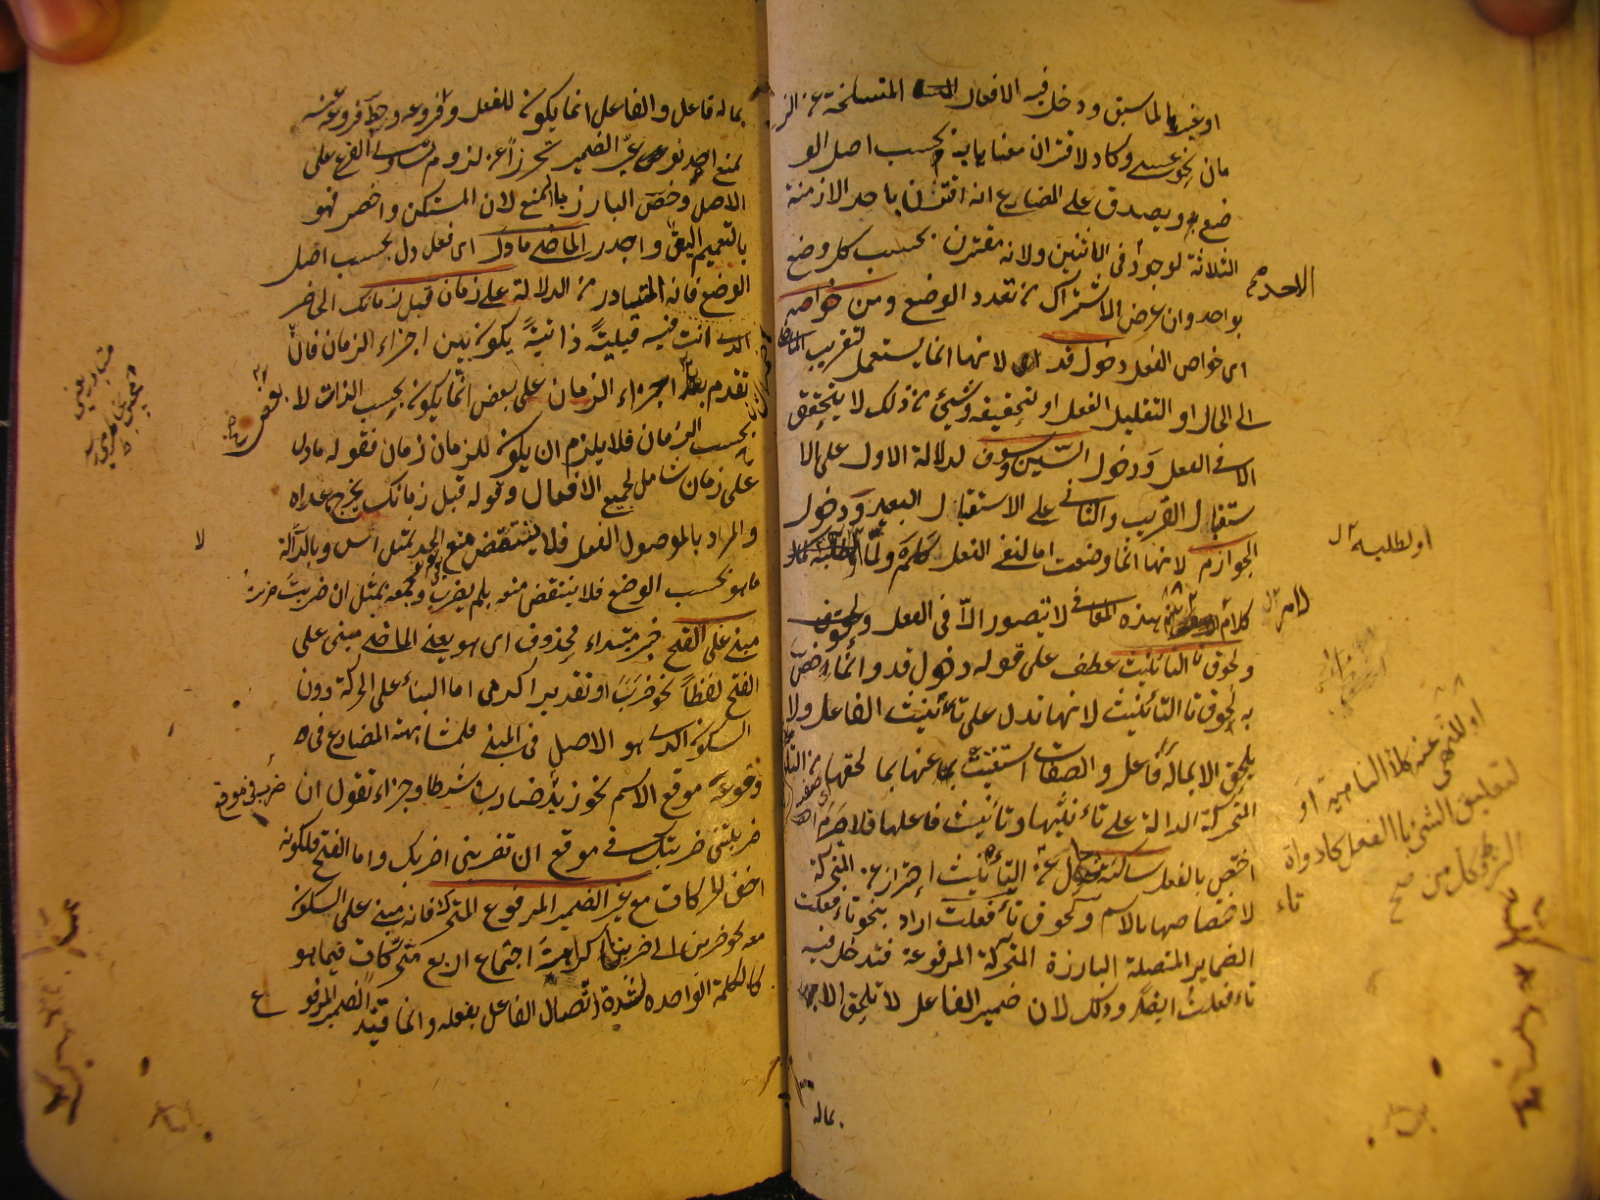 او غير الماسبق ودخل فيه الافعال المنسلخة عن الز
مان نحو عسى وكاد لاقتران معناها به بحسب اصل الو
ضع ويصدق على المضارع انه اقترن باحد الازمنة
الثلاثة لوجود في الاثنين ولانه مقترن بحسب كل وضع
بواحد وان عرض الاشتراك من تعدد الوضع ومن خواصه
اى خواص الفعل دخول قد لانها انما يستعمل لتقريب الماضى
الى الحال او التقليل الفعل او تحقيقه وشئ من ذلك لا يتحقق
الا فى الفعل ودخول السين وسوف لدلالة الاول على الا
ستقبال القريب والثانى على الاستقبال البعيد ودخول
الجوازم لانها انما وضعت اما لنفى الفعل كلم ولما
كلام هذه المعانى لا يتصور الا فى الفعل ولحوق
ولحوق تا التأنيث عطف على قوله دخول قد وانما خص
به لحوق تا التأنيث لانها تدل على تأنيث الفاعل ولا
يلحق الا بماله فاعل والصفات استغنيت عنها بما لحقها من التاء
المتحركة الدالة على تأنيثها وتأنيث فاعلها فلا جرم
اختص بالفعل ساكنة حال عن التأنيث احتراز عن المتحركة
لاختصاصها بالاسم ولحوق تاء فعلت اراد بنحو تاء فعلت
الضماير المتصلة البارزة المتحركة المرفوعة فتدخل فيه
تاء فعلت ايضا وذلك لان ضمير الفاعل لا تلحق الا
بماله
او لطلبه
لام
او للنهى عنه كلا الناهية او
لتعليق الشئ بالفعل كادوات
الشرط وكل من صح
تاء
بماله فاعل والفاعل انما يكون للفعل وفروعه وحط فروعه عنه
بمنع احد نوعى الضمير تحرزا عن لزوم تساوى الفرع على
الاصل وخص البارز بالمنع لان المستكن واخصر فهو
بالتعميم اليق واجدر الماضى ما دل اى فعل دل بحسب اصل
الوضع فانه المتبادر من الدلالة على زمان قبل زمانك الحاضر
الذى انت فيه قبلية ذاتية يكون بين اجزاء الزمان فان
تقدم بعض اجزاء الزمان على بعض انما يكون بحسب الذات لا
بحسب الزمان فلا يلزم ان يكون للزمان زمان فقوله ما دل
على زمان شامل لجميع الافعال وقوله قبل زمانك يخرج ما عداه
والمراد بالموصول الفعل فلا ينتقض منع الحد بمثل امس وبالدالة
ما هو بحسب الوضع فلا ينتقض منعه بلم يضرب وجمعه بمثل ان ضربت ضربت
مبنى على الفتح خبر مبتداء محذوف اى هو يعنى الماضى مبنى على
الفتح لفظا نحو ضرب او تقديرا كرمى اما البناء على الحركة دون
السكون الذى هو الاصل فى المبنى فلمشابهته المضارع فى
وقوعه موقع الاسم نحو زيد ضارب شرطا وجزاء تقول ان
ضربتنى ضربتك فى موقع ان تضربنى اضربك واما الفتح فلكونه
اخف الحركات مع غير الضمير المرفوع المتحرك فانه مبنى على السكون
معه نحو ضربن الى ضربنا كراهة اجتماع اربع متحركات فيما هو
كالكلمة الواحده لشدة اتصال الفاعل بفعله وانما قيد الضمير المرفوع
بعض
لا